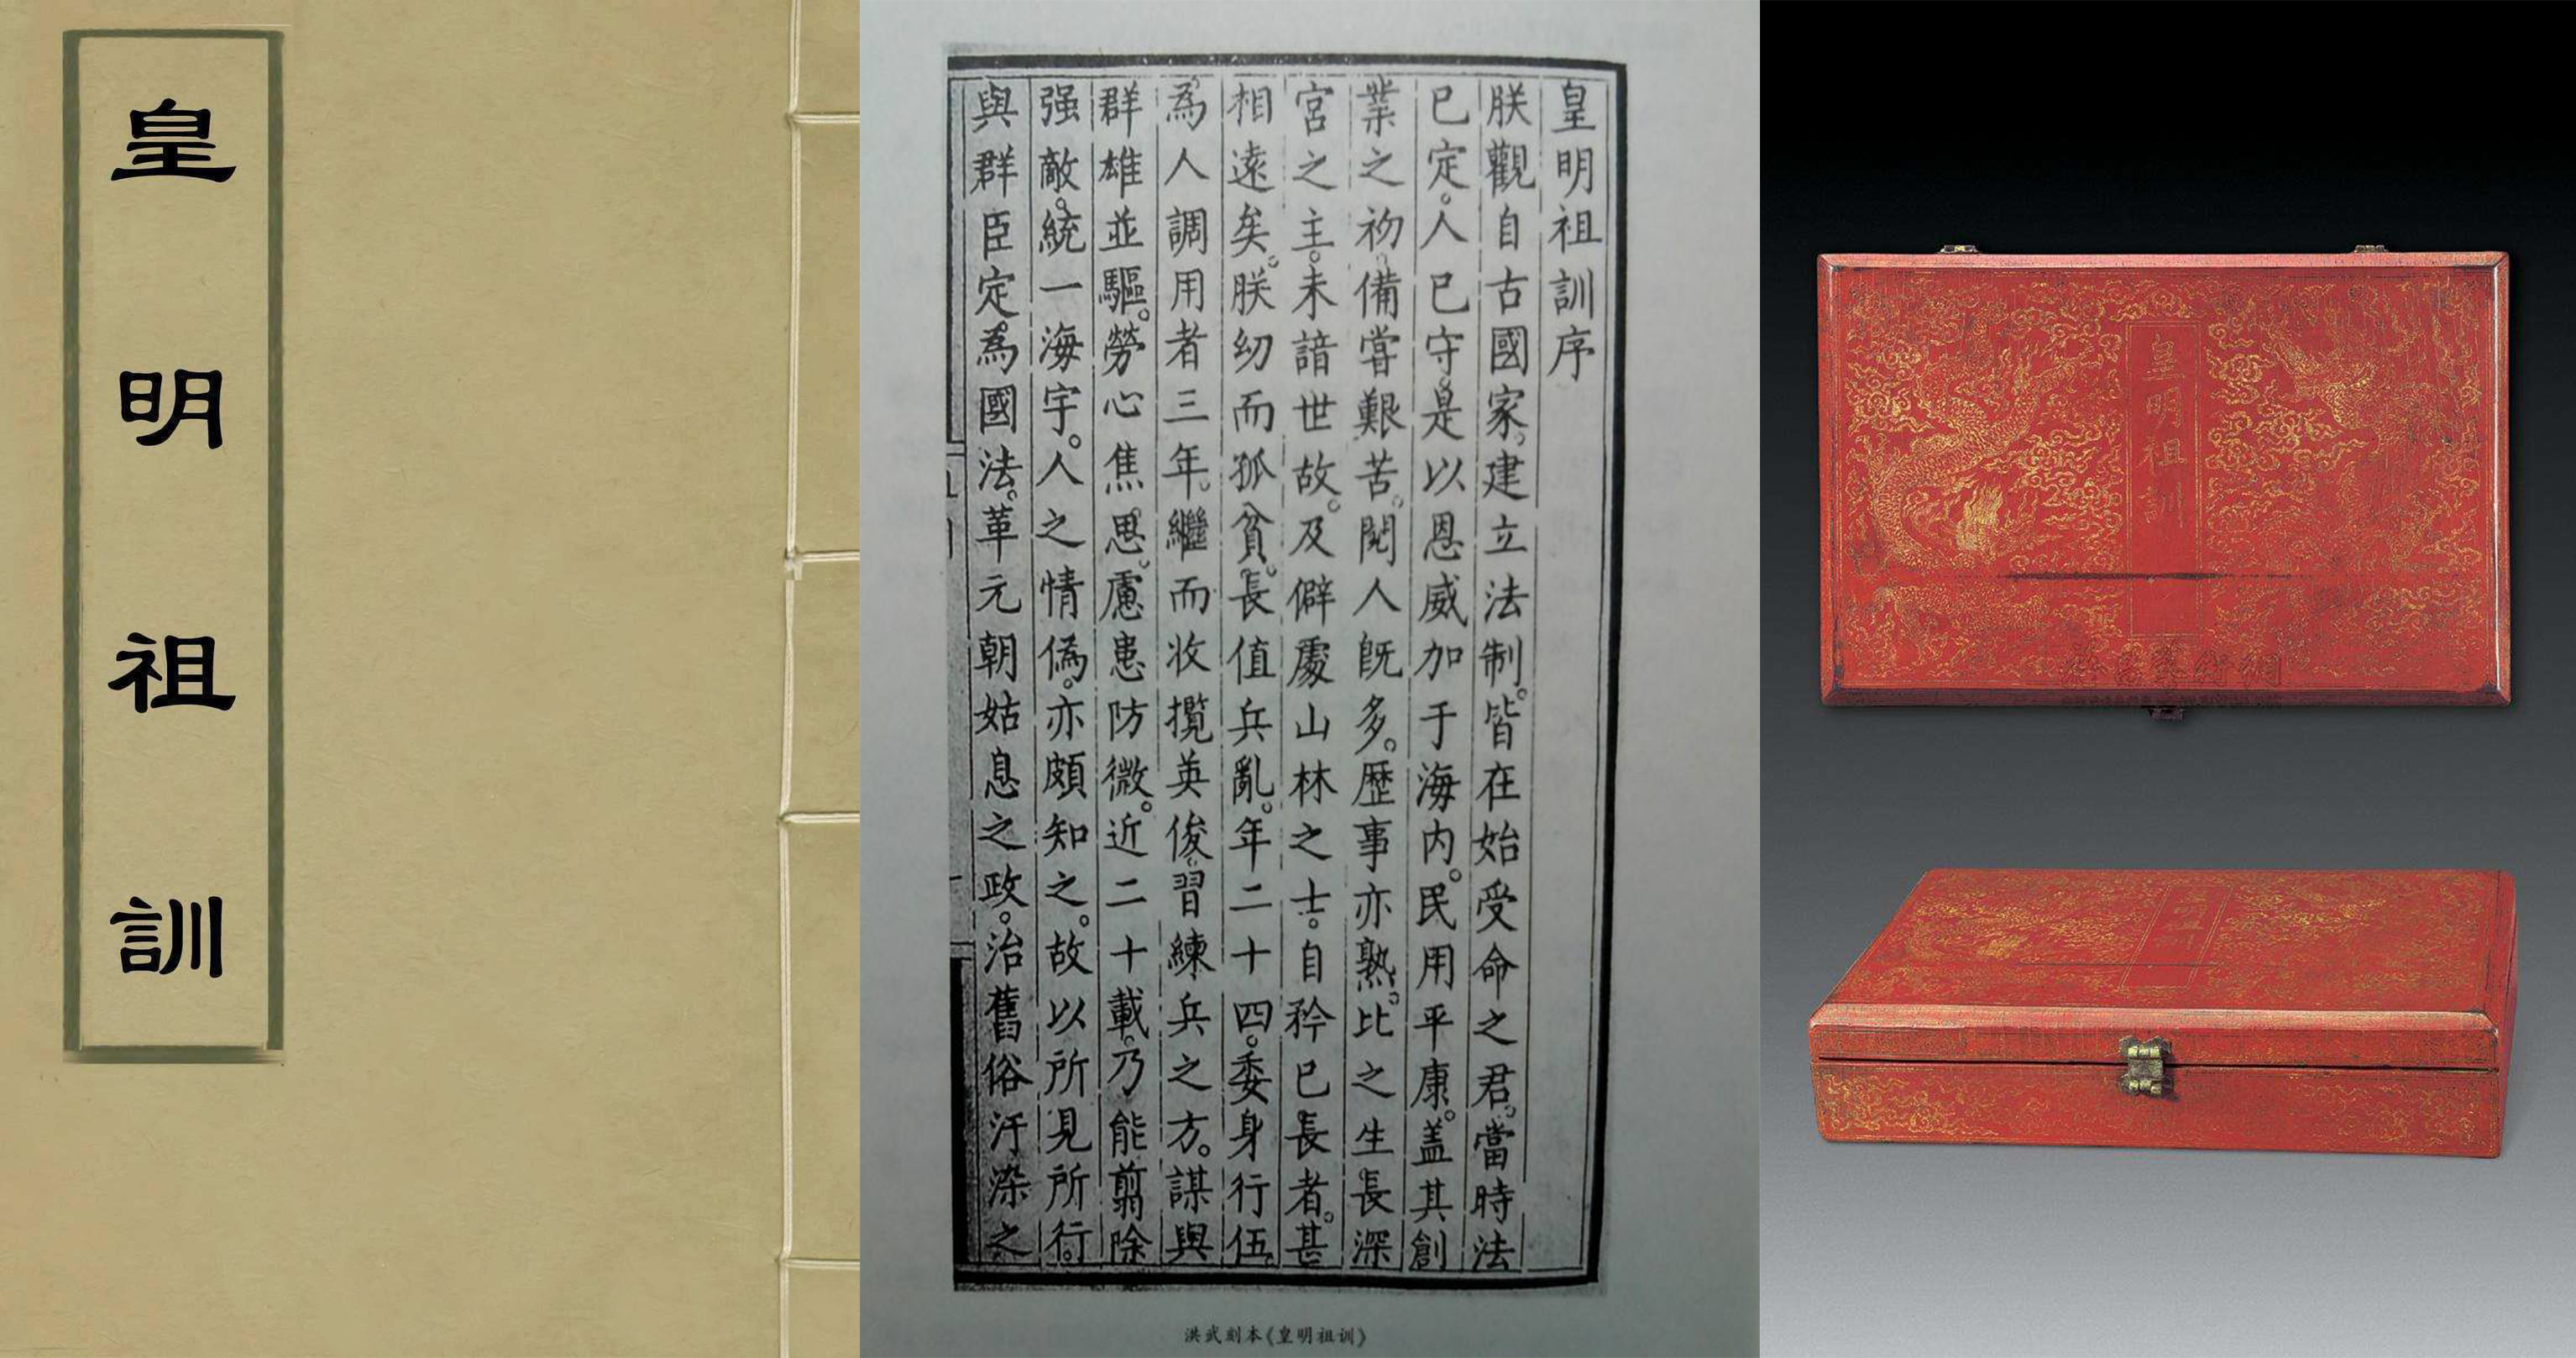 皇明祖訓
皇明祖訓序
朕觀自古國家。建立法制。皆在始受命之君。當時法
已定。人已守。是以恩威加于海内。民用平康。盖其創
業之初。備嘗艱苦。閱人既多。歷事亦熟。比之生長深
宮之主。未諳世故。及僻處山林之士。自矜已長者。甚
相遠矣。朕幼而孤貧。長值兵亂。年二十四。委身行伍。
為人調用者三年。繼而收攬英俊。習練兵之方。謀與
群雄並驅。勞心焦思。慮患防微。近二十載。乃能剪除
强敵。統一海宇。人之情偽。亦頗知之。故以所見所行。
與群臣定為國法。革元朝姑息之政。治舊俗汙染之
洪武刻本《皇明祖训》
皇明祖訓